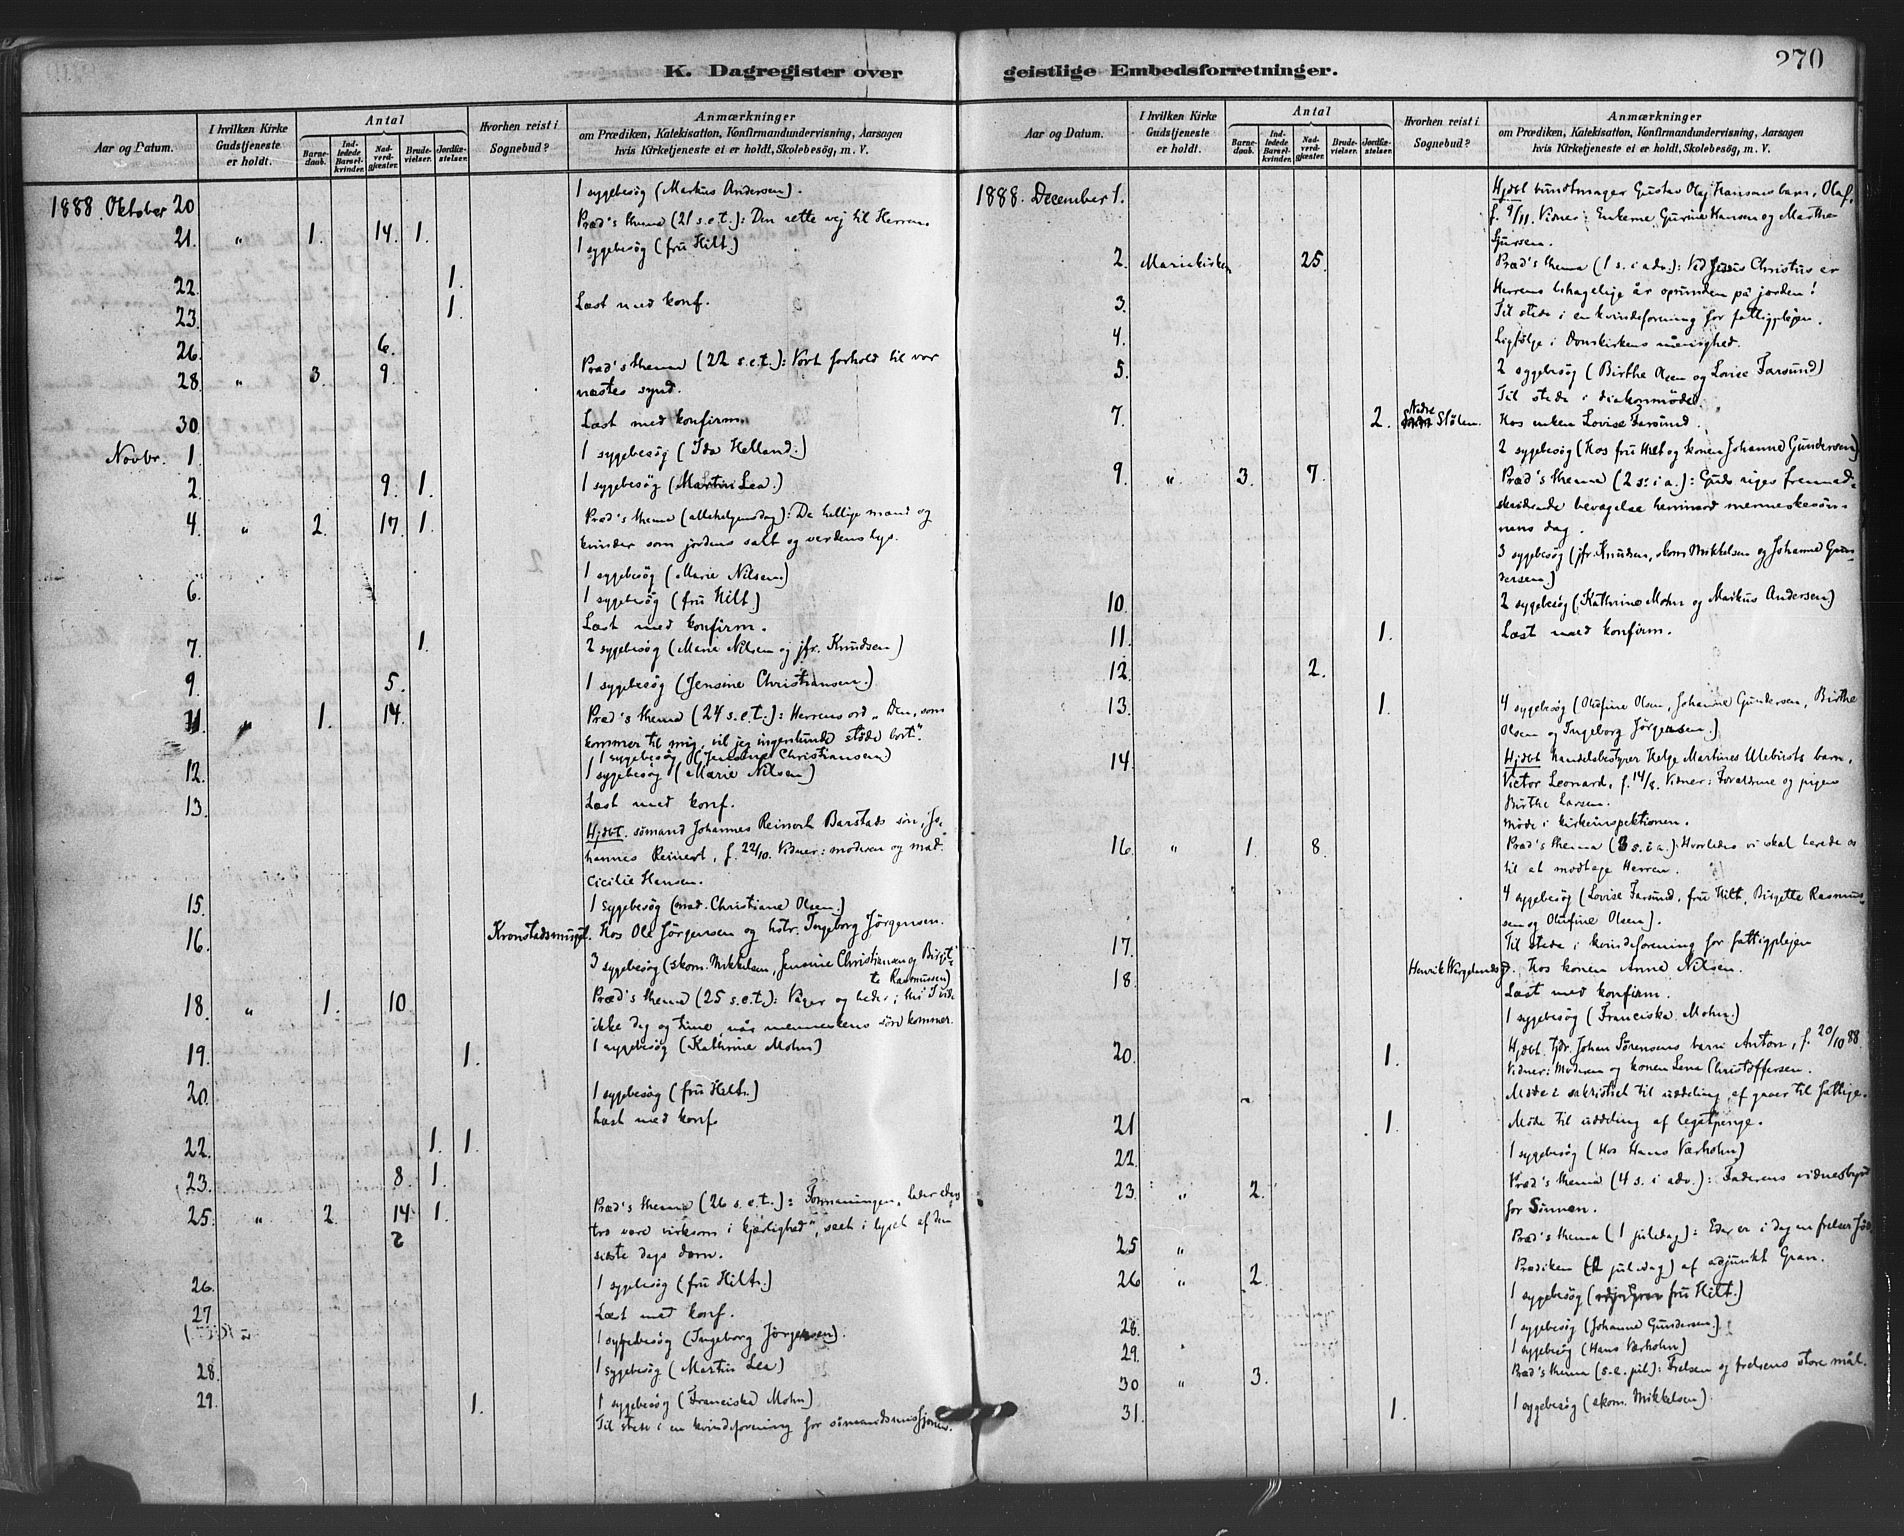 270
K. Dagregister over geistlige Embedsforretninger.
Aar og Datum. I hvilken Kirke Gudstjeneste er holdt. Antal Barnedaab. Indledede Barselkvinder. Nadverdgjæster. Brudevielser. Jordfæstelser. Hvorhen reist i Sognebud? Anmærkninger
om Prædiken, Katekisation, Konfirmandundervisning, Aarsagen
hvis Kirketjeneste ei er holdt, Skolebesøg, m. V.
1888. Oktober 20 1 sygebesøg (Markus Andersen).
21. " 1. 14. 1. Præd's thema (21 s.e.t.): Den rette vej til Herren.
1 sygebesøg (fru Hilt.)
22. 1.
23. 1. Læst med konf.
26. 6.
28. " 3. 9. Præd's thema (22 s.e.t.): Vort forhold til vor
næstes synd.
30. Læst med konfirm.
Novbr. 1. 1 sygebesøg (Ida Helland.)
2. 9. 1. 1 sygebesøg (Martin Lea.)
4. " 2. 17. 1. Præd's thema (allehelgensdag): De hellige mænd og
kvinder som jordens salt og verdens lys.
1 sygebesøg (Marie Nilsen.)
6. 1 sygebesøg (fru Hilt.)
Læst med konfirm.
7. 1. 2 sygebesøg (Marie Nilsen og jfr. Knudsen)
9. 5. 1 sygebesøg (Jensine Christiansen.)
11. " 1. 14. Præd's thema (24 s.e.t.): Herrens ord "Den, som
kommer til mig, vil jeg ingenlunde støde bort."
1 sygebesøg (Jensine Christiansen)
12. 1 sygebesøg (Marie Nilsen)
13. Læst med konf.
Hjdbt. sømand Johannes Reinert Barstads søn, Jo-
hannes Reinert, f. 22/10. Vidner: moderen og mad.
Cicilie Hansen.
15. 1 sygebesøg (mad. Christiane Olsen.)
16. Hos Ole Jørgensen og hstr. Ingeborg Jørgensen.
3 sygebesøg (skom. Mikkelsen, Jensine Christiansen og Birgit-
te Rasmussen)
18. " 1. 10. Præd's thema (25 s.e.t.): Våger og beder, thi I vide
ikke dag og time, når menneskens søn kommer.
19. 1. 1 sygebesøg (Kathrine Mohn)
20. 1 sygebesøg (fru Hilt.)
Læst med konf.
22. 1. 1.
23. 8. 1.
25. " 2. 14. 1. Præd's thema (26 s.e.t.): Formaningen "Lader eders
2 tro være virksom i kjærlighed", seet i lyset af den
sidste dags dom.
26. 1 sygebesøg (fru Hilt.)
27. Læst med konf.
1 sygebesøg (Ingeborg Jørgensen).
28. 1 sygebesøg (Martin Lea)
29. 1. 1 sygebesøg (Franciska Mohn)
Til stede i en kvindeforening for sømandsmissjonen.
Aar og Datum. I hvilken Kirke Gudstjeneste er holdt. Antal Barnedaab. Indledede Barselkvinder. Nadverdgjæster. Brudevielser. Jordfæstelser. Hvorhen reist i Sognebud? Anmærkninger
om Prædiken, Katekisation, Konfirmandundervisning, Aarsagen
hvis Kirketjeneste ei er holdt, Skolebesøg, m. V.
1888. December 1. Hjdbt bundtmager Gustav Olaj Hansens barn, Olaf,
f. 9/11. Vidner: Enkerne Gurine Hansen og Marthe
Sjursen.
2. Mariekirken 25. Præd's thema (1 s. i adv.): Ved Jesus Christus er
Herrens behagelige år oprunden på jorden!
3. Til stede i en kvindeforening for fattigplejen.
4. Ligfølge i Domkirkens menighed.
5. 2 sygebesøg (Birthe Olsen og Lovise Farsund)
Til stede i diakonmødet
7. 2. Nedre Stølen. Hos enken Lovise Farsund.
2 sygebesøg (Hos fru Hilt og konen Johanne Gundersen)
9. " 3. 7. Præd's thema (2 s. i a.): Guds riges fremad-
skridende bevægelse henimod menneskesøn-
nens dag.
3 sygebesøg (jfr. Knudsen, skom. Mikkelsen og Johanne Gun-
dersen)
10. 2 sygebesøg (Kathrine Mohn og Markus Andersen)
11. 1. Læst med konfirm.
12. 2.
13. 1. 4 sygebesøg (Olufine Olsen, Johanne Gundersen, Birthe
Olsen og Ingeborg Jørgensen.)
14. Hjdbt handelsbestyrer Helge Martines barn,
Victor Leonard, f. 14/8. Vidner: Forældrene og pigen
Birthe Larsen.
Møde i kirkeinspektionen.
16. " 1. 8. Præd's thema (3 s. i a.): Hvorledes vi skal berede os
til at modtage Herren.
4 sygebesøg (Lovise Farsund, fru Hilt, Birgitte Rasmus-
sen og Olufine Olsen).
17. Til stede i kvindeforening for fattigplejen
18. Henrik Wergelands Hos konen Anne Nilsen.
Læst med konfirm.
1 sygebesøg (Franciska Mohn.)
20. 1. Hjdbt. Johan Sørensens barn Anton, f. 20/10 88
Vidner: Moderen og konen Lena Christoffersen.
Møde i sakristiet til uddeling af gaver til fattige.
21 1. Møde til uddeling af legatpenge.
22. 1 sygebesøg (Hos Hans Værholm)
23. " 2. Præd's thema (4 s. i adv.): Faderens vidnesbyrd
for Sønnen.
25 " Præd's thema (1 juledag): Eder er i dag en frelser fød
26 " 2. Prædiken (2 juledag) af adjunkt Gran.
1 sygebesøg (fru Hilt.)
28. 1 sygebesøg (Johanne Gundersen)
29. 1 sygebesøg (Hans Værholm)
30 " 3. Præd's thema (s.e. jul): Frelsen og frelsens store mål.
31. 1. 1 sygebesøg (skom. Mikkelsen)